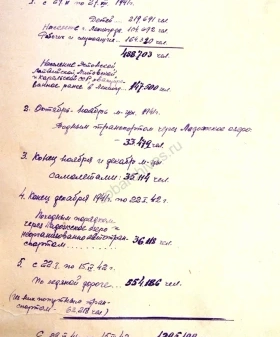 1. с 29.VI по 27.VIII. 1941г.
Детей... 219691 чел.
Население г. Ленинграда 104692 чел
Рабочих и служащих... 164320 чел.
488703 чел.
Население Эстонской
Латвийской, Литовской,
и карельской ССР эвакуиро-
ванное ранее в Ленингр. 147500 чел.
2. Октябрь-ноябрь м-цы. 1941г.
Водным транспортом через Ладожское озеро
- 33479 чел.
3. Конец ноября и декабрь м-цы
самолетами: 35114 чел.
4. Конец декабря 1941г. по 22.I.42г.
Походным порядком
через Ладожское озеро и
неорганизованно автотран-
спортом... 36118 чел.
5. с 22.I. по 15.IV.42г.
По ледяной дороге... 554186 чел.
(Из них попутным тран-
спортом